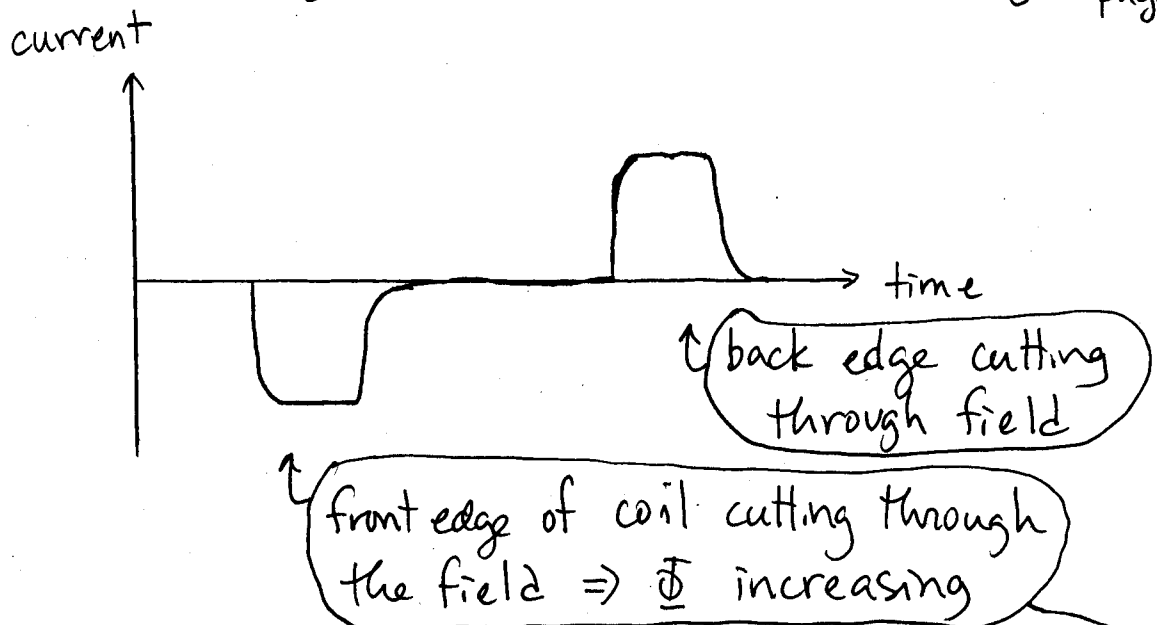 pag
current
time
back edge cutting
through field
front edge of coil cutting through
the field ⇒ Φ increasing